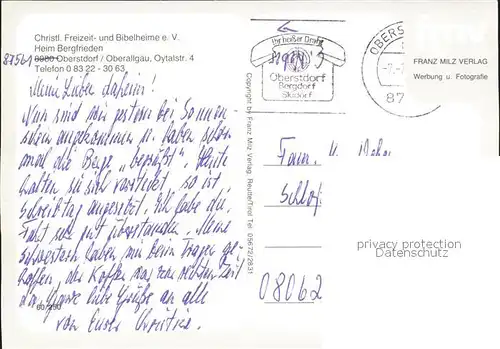 Christl. Freizeit- und Bibelheime e. V.
Heim Bergfrieden
87561
8980 Oberstdorf / Oberallgäu, Oytalstr. 4
Telefon 0 83 22 - 30 63
Meine Lieben daheim!
Nun sind wir gestern bei Sonnen-
schein angekommen u. haben schon
mal die Berge „begrüßt". Heute
halten sie sich versteckt, so ist
Schreibtag angesetzt. Ich habe die
Fahrt sehr gut überstanden. Meine
Schwestern haben mir beim Tragen ge-
holfen, der Koffer war zur rechten Zeit
da. Ganz liebe Grüße an alle
von Eurer Christine.
Copyright by Franz Milz Verlag, Reutte/Tirol Tel. 05672/2831
Ihr heißer Draht
Oberstdorf
Bergdorf
Skidorf
OBERS
87
FRANZ MILZ VERLAG
Werbung u. Fotografie
Fam. U.
08062
privacy protection
Datenschutz